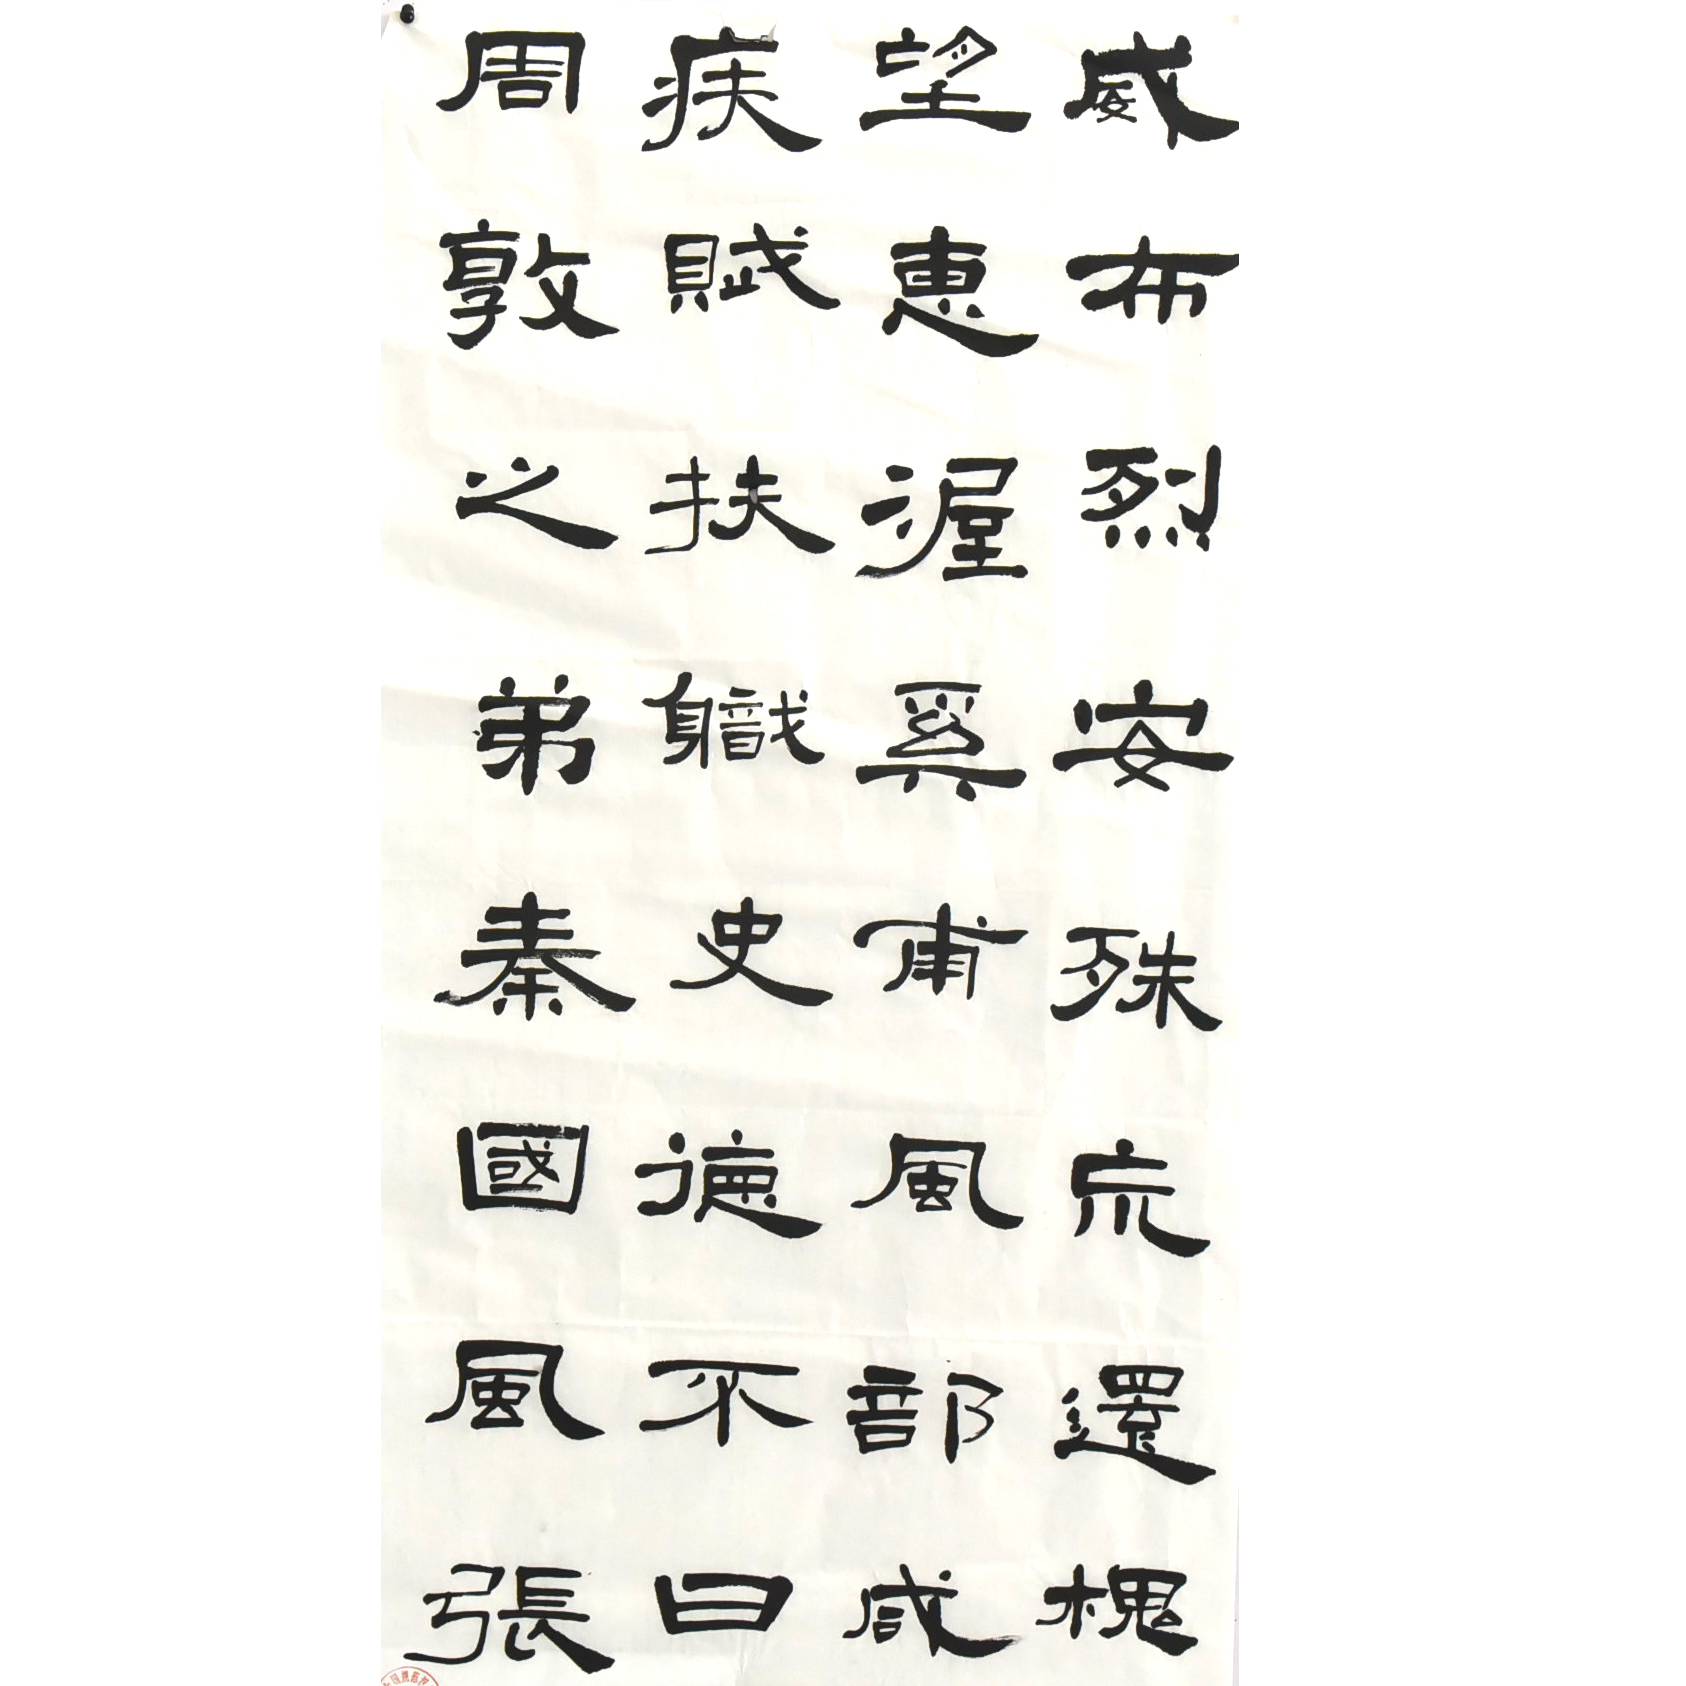 威布烈安殊荒還槐
望惠渥爰甫風部咸
疾賦扶職史德不曰
周敦之弟秦國風張